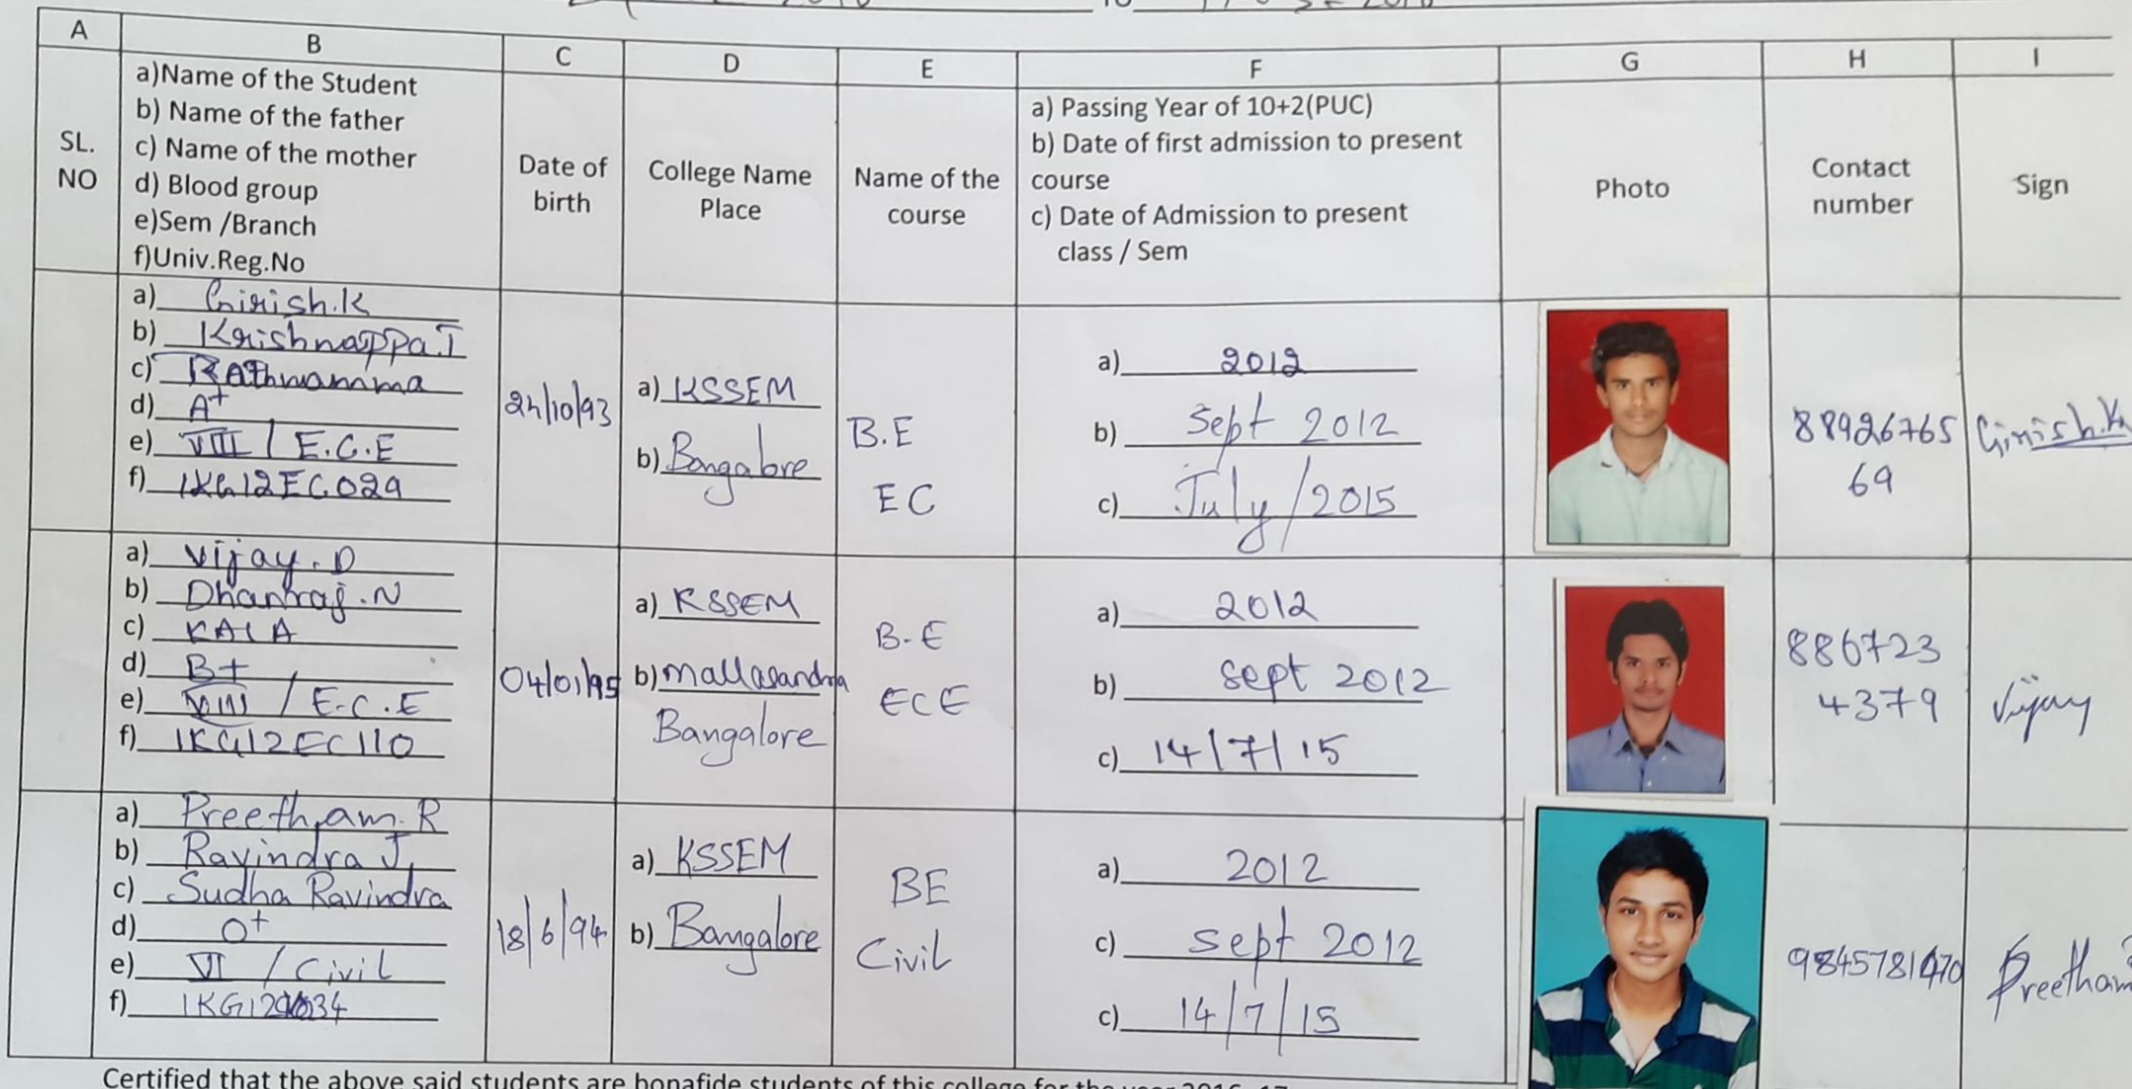 A B C D E F G H I
SL.
NO
a)Name of the Student
b) Name of the father
c) Name of the mother
d) Blood group
e)Sem /Branch
f)Univ.Reg.No
Date of
birth
College Name
Place
Name of the
course
a) Passing Year of 10+2(PUC)
b) Date of first admission to present
course
c) Date of Admission to present
class / Sem
Photo
Contact
number
Sign
a) Girish.K
b) Krishnappa.T
c) Rathnamma
d) A+
e) VIII / E.C.E
f) 1KG12EC029
24/10/93
a) KSSEM
b) Bangalore
B.E
EC
a) 2012
b) Sept 2012
c) July/2015
88926765
69
Girish.K
a) Vijay.D
b) Dhanraj.N
c) KALA
d) B+
e) VIII / E.C.E
f) 1KG12EC110
04/01/95
a) KSSEM
b) mallasandra
Bangalore
B.E
ECE
a) 2012
b) sept 2012
c) 14/7/15
886723
4379
Vijay
a) Preetham.R
b) Ravindra J
c) Sudha Ravindra
d) O+
e) VI / Civil
f)
18/6/94
a) KSSEM
b) Bangalore
BE
Civil
a) 2012
c) sept 2012
c) 14/7/15
9845781470
Preetham
Certified that the above said students are bonafide students of this college for the year 2016-17